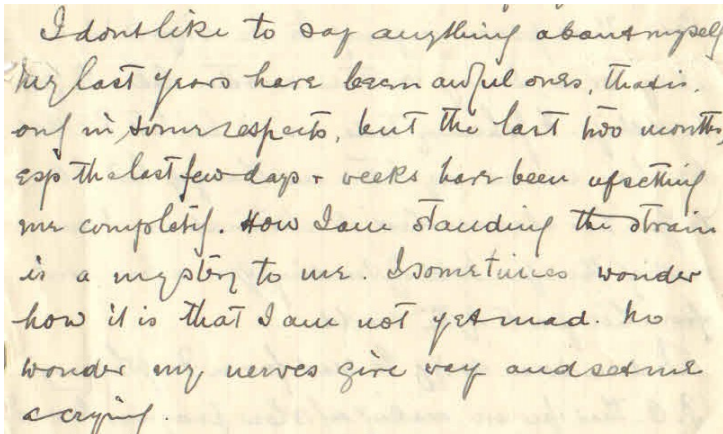 I dont like to say anything about myself
My last years have been awful ones, that is,
only in some respects, but the last two months,
esp the last few days + weeks have been upsetting
me completely. How I am standing the strain
is a mystery to me. I sometimes wonder
how it is that I am not yet mad. No
wonder my nerves give way and set me
a crying.